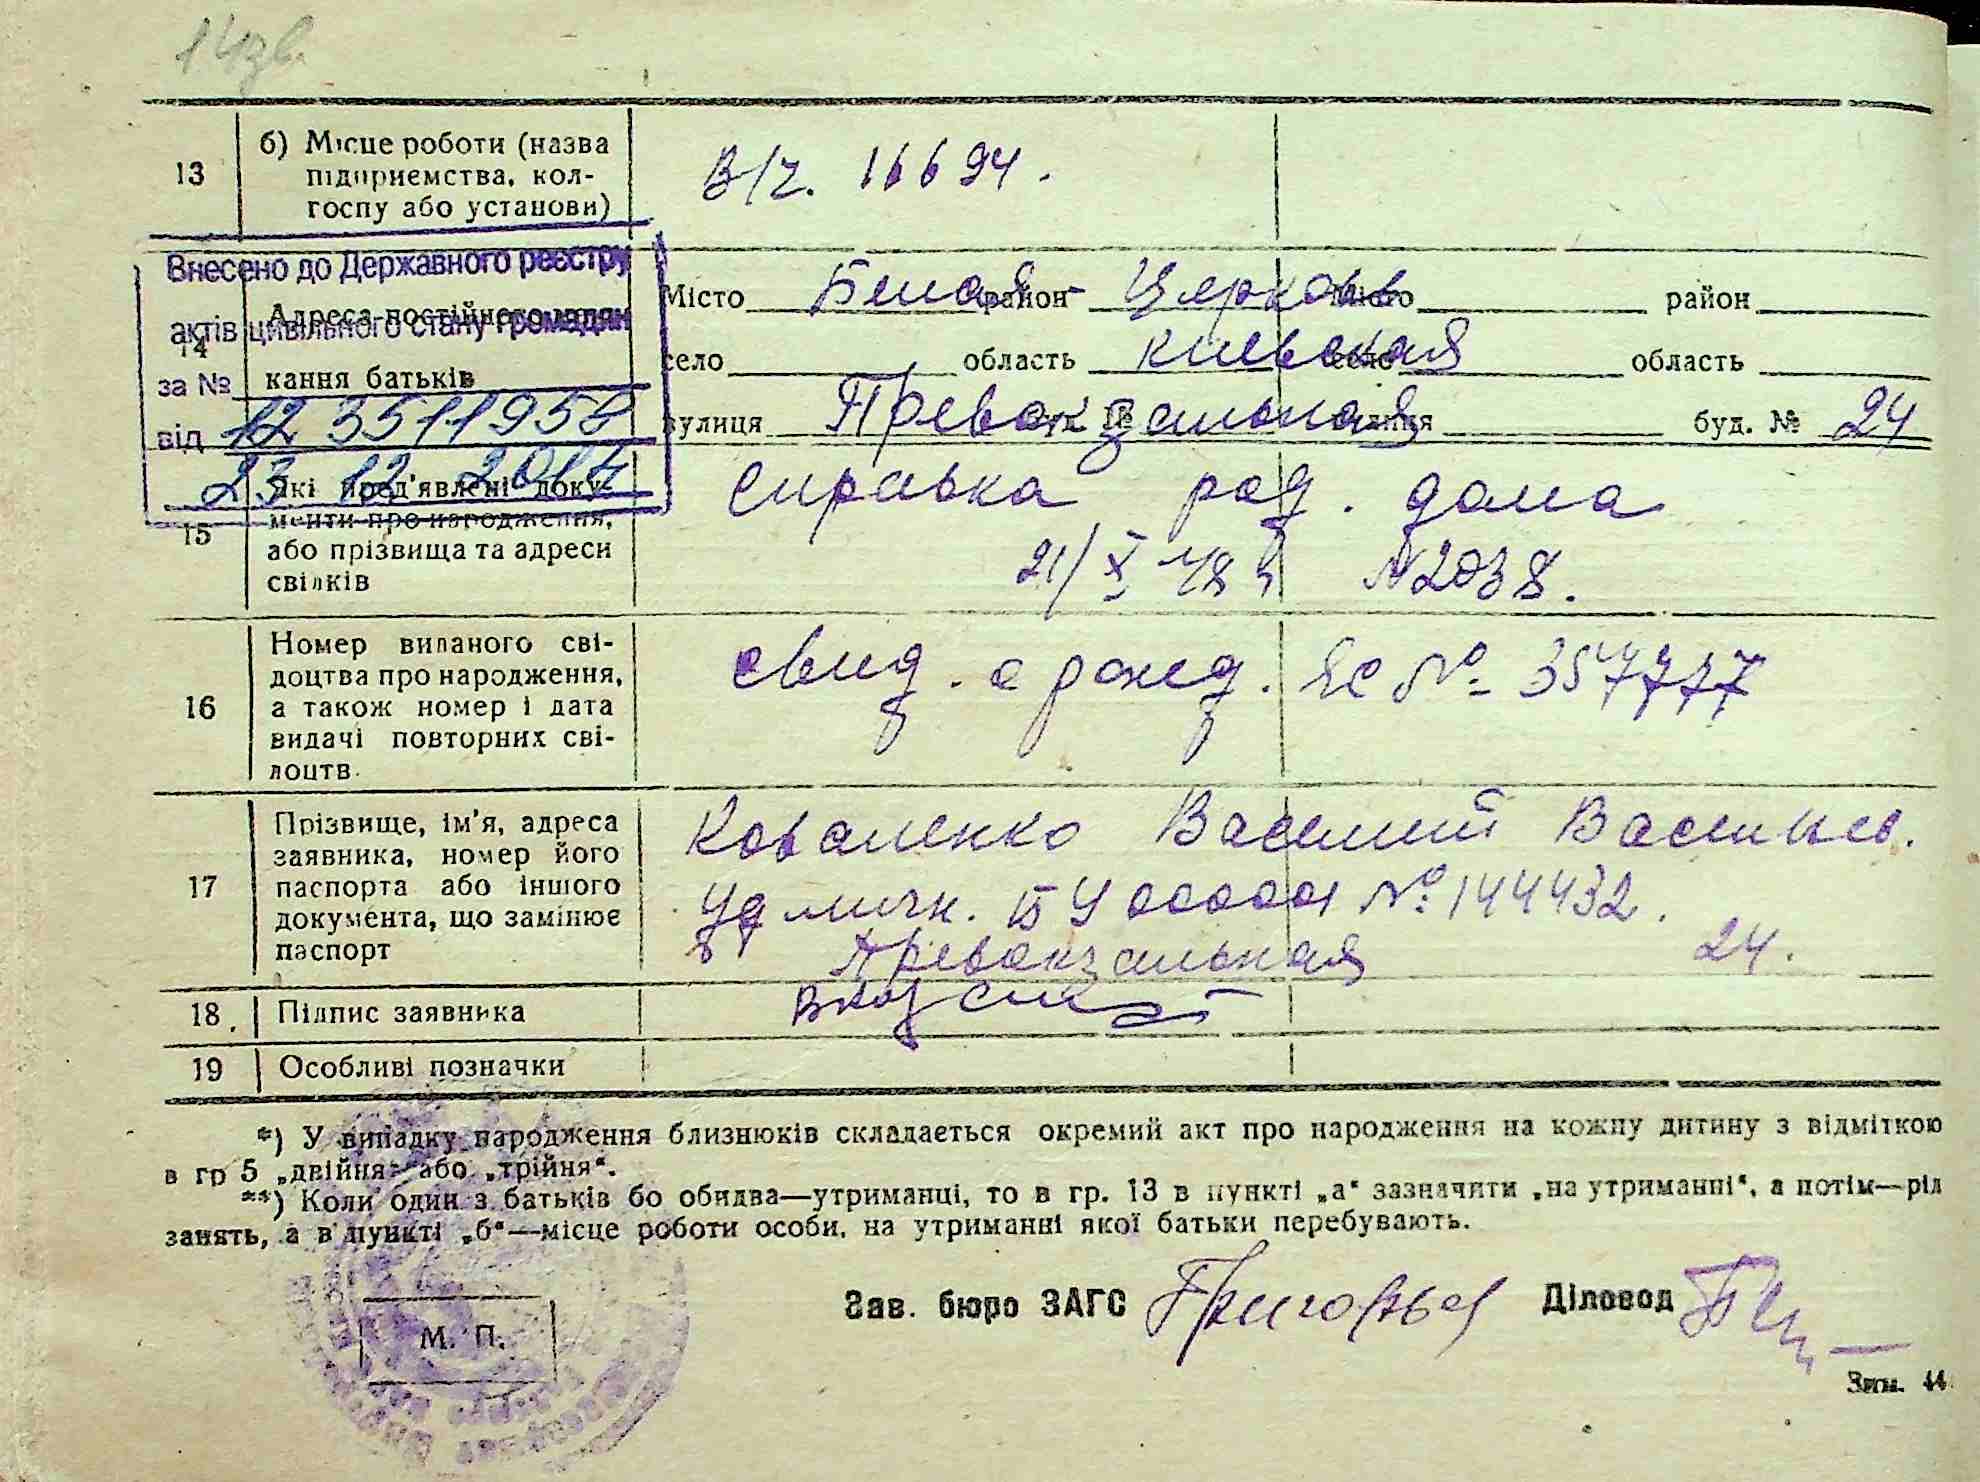 14зв.
13 б) Місце роботи (назва В/ч. 16694.
підприємства, кол-
госпу або установи)
Внесено до Державного реєстру
актів цивільного стану громадян
за №
12 3511958
від
23 12 2014
14 Адреса постійного
кання батьків
Місто Белая район Церковь Місто район
село область Киевская село область
вулиця Превокзальная вулиця буд. № 24
15 Які пред'явлені доку-
менти про народження,
або прізвища та адреси
свідків
справка род. дома
21/X 48 г N2038.
16 Номер виданого сві-
доцтва про народження,
а також номер і дата
видачі повторних сві-
доцтв.
свид. о рожд. № 357777
17 Прізвище, ім'я, адреса
заявника, номер його
паспорта або іншого
документа, що замінює
паспорт
Коваленко Василий Васильев.
Уд личн. № 144432.
Превокзальная 24.
18 Підпис заявника
19 Особливі позначки
*) У випадку народження близнюків складається окремий акт про народження на кожну дитину з відміткою
в гр 5 „двійня“ або „трійня“.
**) Коли один з батьків бо обидва—утриманці, то в гр. 13 в пункті „а“ зазначити „на утриманні“, а потім—рід
занять, а в пункті „б“—місце роботи особи, на утриманні якої батьки перебувають.
Зав. бюро ЗАГС Діловод
М. П.
Зам. 44